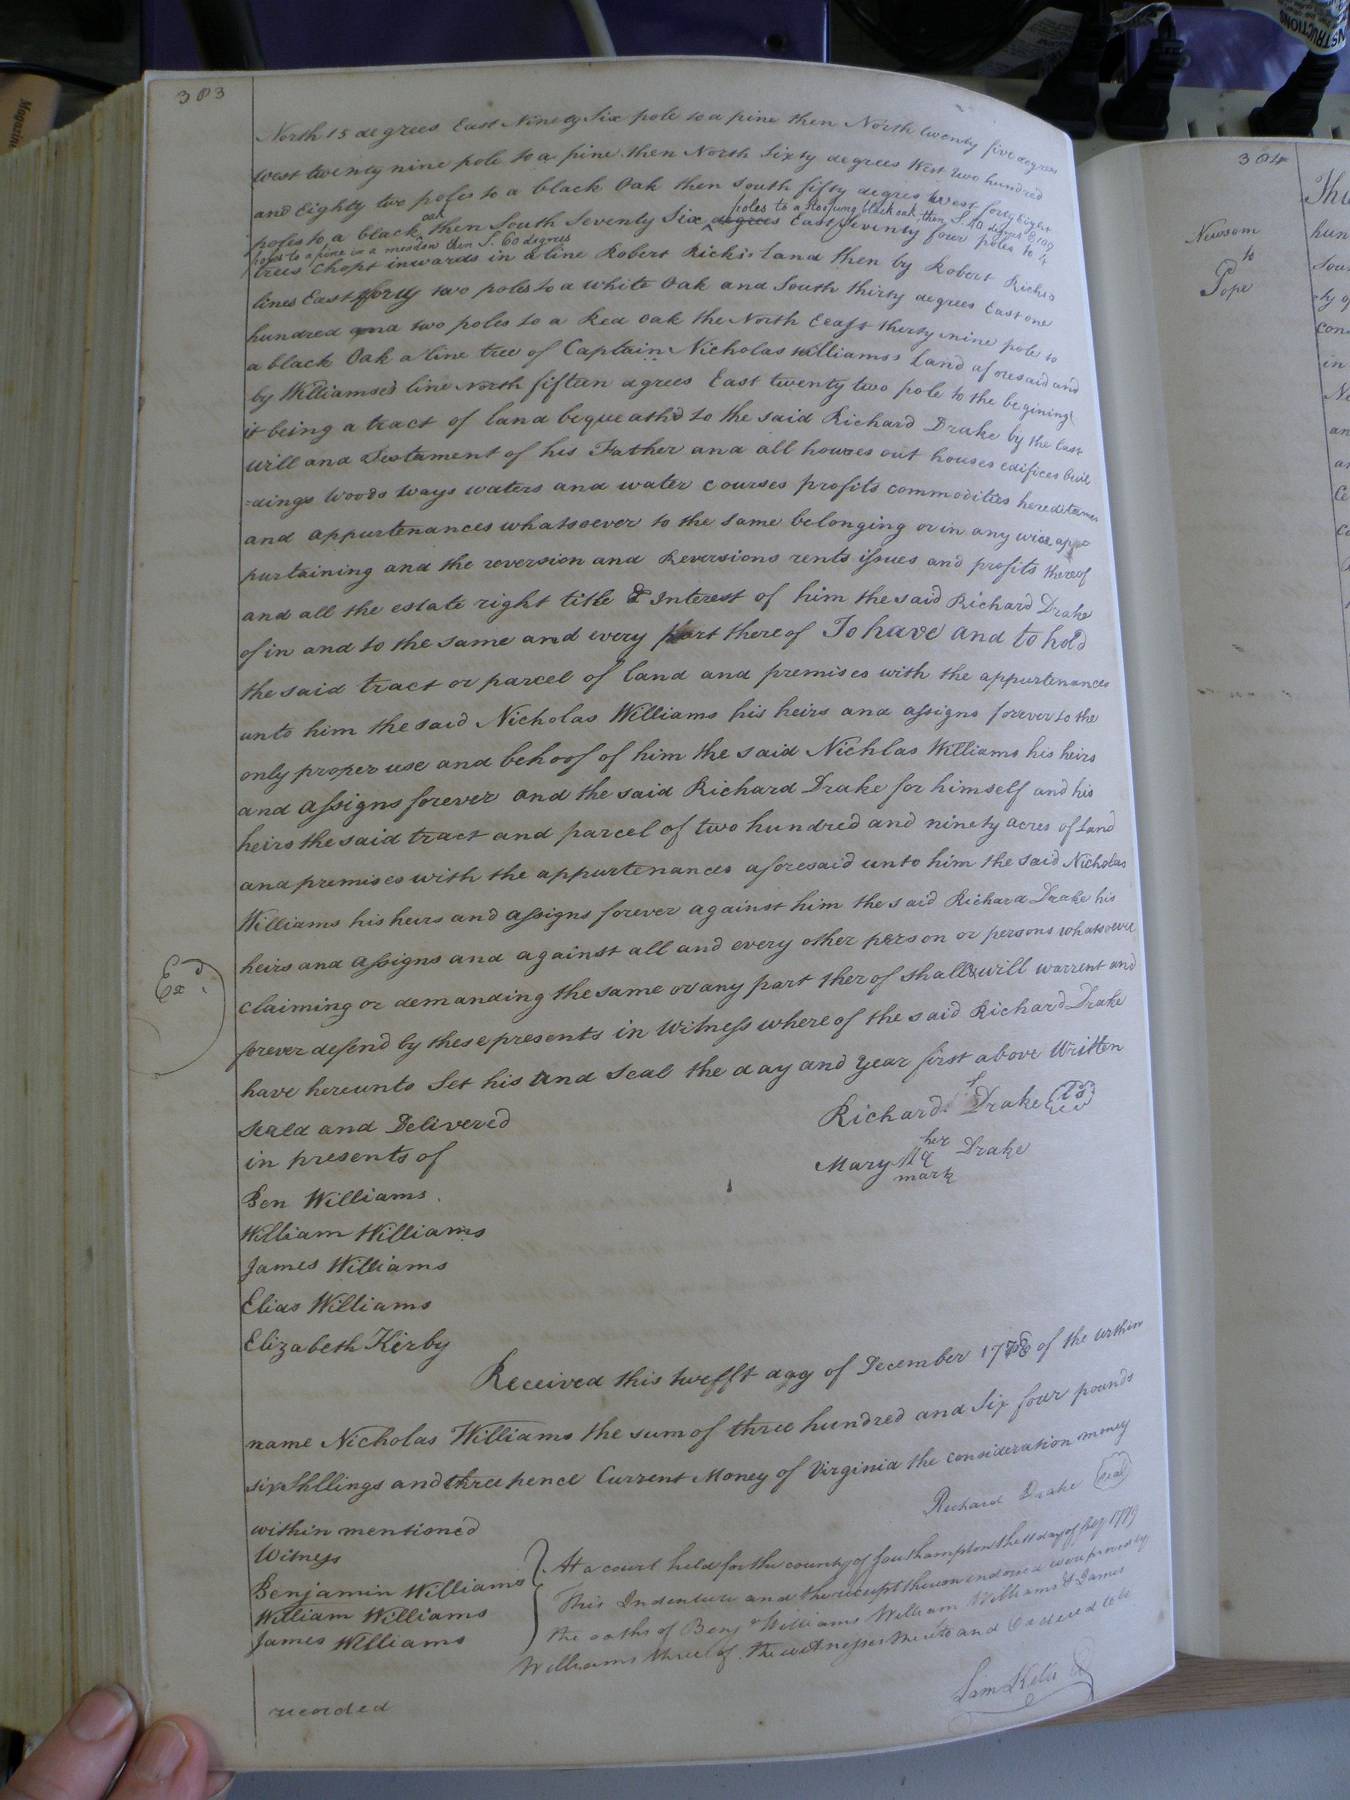 383
North 15 degrees East Ninety Six pole to a pine then North twenty five degrees
West twenty nine pole to a pine then North Sixty degrees West two hundred
and Eighty two poles to a black Oak then South fifty degres West forty Eight
poles to a black oak then South Seventy Six degrees East Seventy four poles to 4
poles to a stooping black oak, then S. 40 degrees E 109
poles to a pine in a meadow then S. 60 degrees
trees Chopt inwards in a line Robert Ricks's land then by Robert Ricks's
lines East forty two poles to a white Oak and South thirty degrees East one
hundred and two poles to a Red Oak the North East thirty nine poles to
a black Oak a line tree of Captain Nicholas williamss Land aforesaid and
by Williamses line North fifteen degrees East twenty two pole to the begining
it being a tract of land bequeathd to the said Richard Drake by the last
will and Testament of his Father and all houses out houses edifices buil
=dings woods ways waters and water Courses profits commodities hereditamen
and appurtenances whatsoever to the same belonging or in any wise app=
purtaining and the reversion and Reversions rents issues and profits thereof
and all the estate right title & Interest of him the said Richard Drake
of in and to the same and every part there of To have and to hold
the said tract or parcel of land and premises with the appurtenances
unto him the said Nicholas Williams his heirs and assigns forever to the
only proper use and behoof of him the said Nichlas Williams his heirs
and assigns forever and the said Richard Drake for himself and his
heirs the said tract and parcel of two hundred and ninety acres of Land
and premises with the appurtenances aforesaid unto him the said Nicholas
Williams his heirs and assigns forever against him the said Richard Drake his
heirs and assigns and against all and every other person or persons whatsoever
Exd
claiming or demanding the same or any part ther of shall & will warrent and
forever defend by these presents in Witness where of the said Richard Drake
have hereunto Set his and Seal the day and Year first above Written
Seald and Delivered
Richard Drake (LS)
in presents of
her
Mary M Drake
mark
Ben Williams.
William Williams
James Williams
Elias Williams
Elizabeth Kirby
Received this twefft day of December 1778 of the within
name Nicholas Williams the sum of three hundred and Six four pounds
six Shllings and three pence Current Money of Virginia the consideration money
within mentioned
Richard Drake seal
Witness
Benjamin Williams
William Williams
James Williams
At a court held for the county of Southampton the day of 1779
This Indenture and the receipt thereon endorsed were proved by
the oaths of Benj Williams William Williams & James
Williams three of the witnesses thereto and Ordered to be
recorded
Sam Kello
384
Newsom
to
Pope